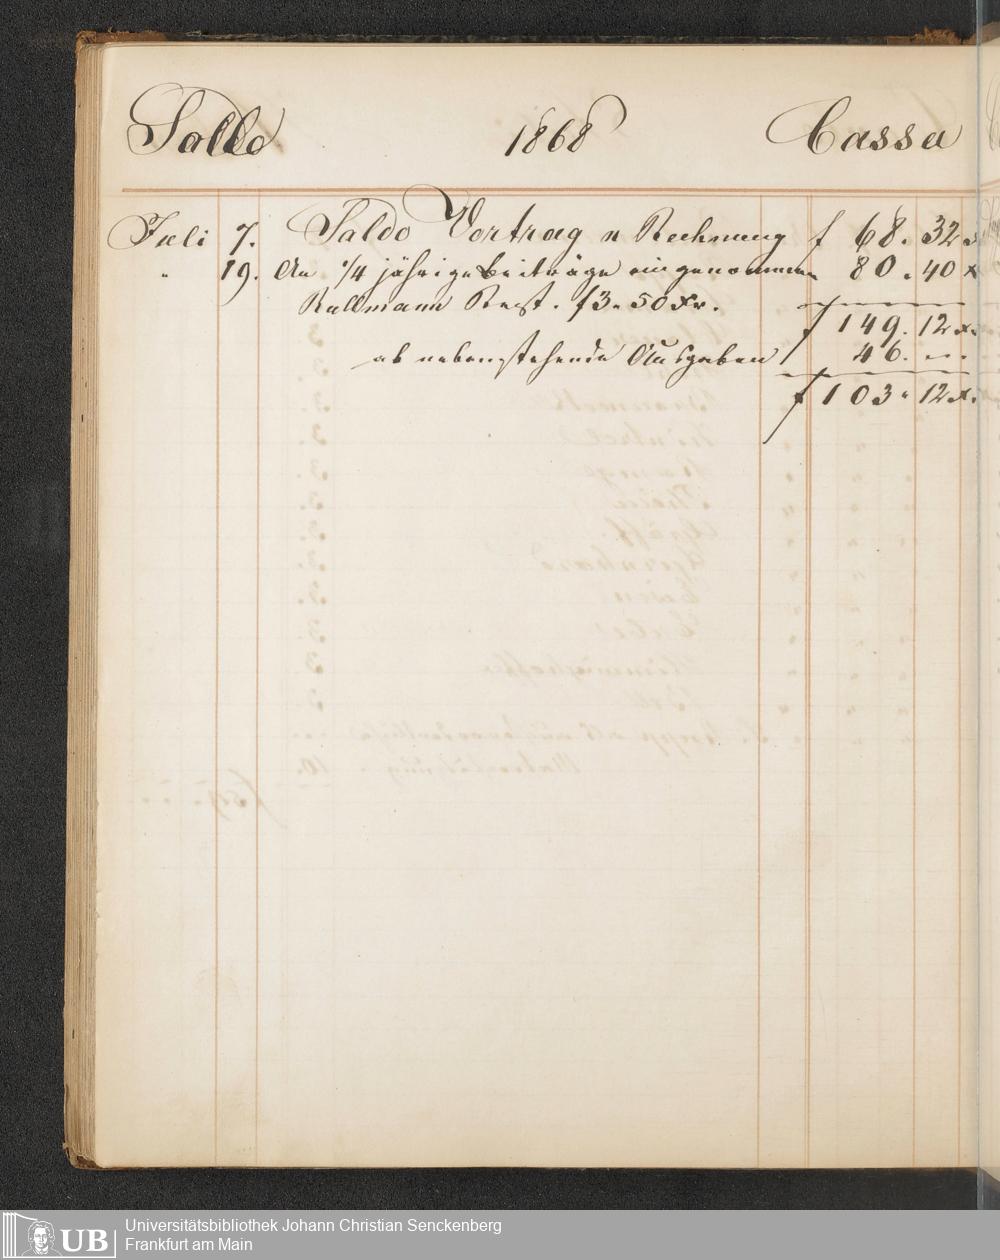 Solle 1868 Cassa
Juli 7. Saldo Vortrag n Rechnung f 68. 32 x
" 19. An 1/4 jährige beiträge eingenommen 80. 40 x
Rullmann Rest. f 3. 50 Xr.
f 149. 12 x.
ab nebenstehende Ausgaben 46. ---
f 103. 12 x.
UB
Universitätsbibliothek Johann Christian Senckenberg
Frankfurt am Main